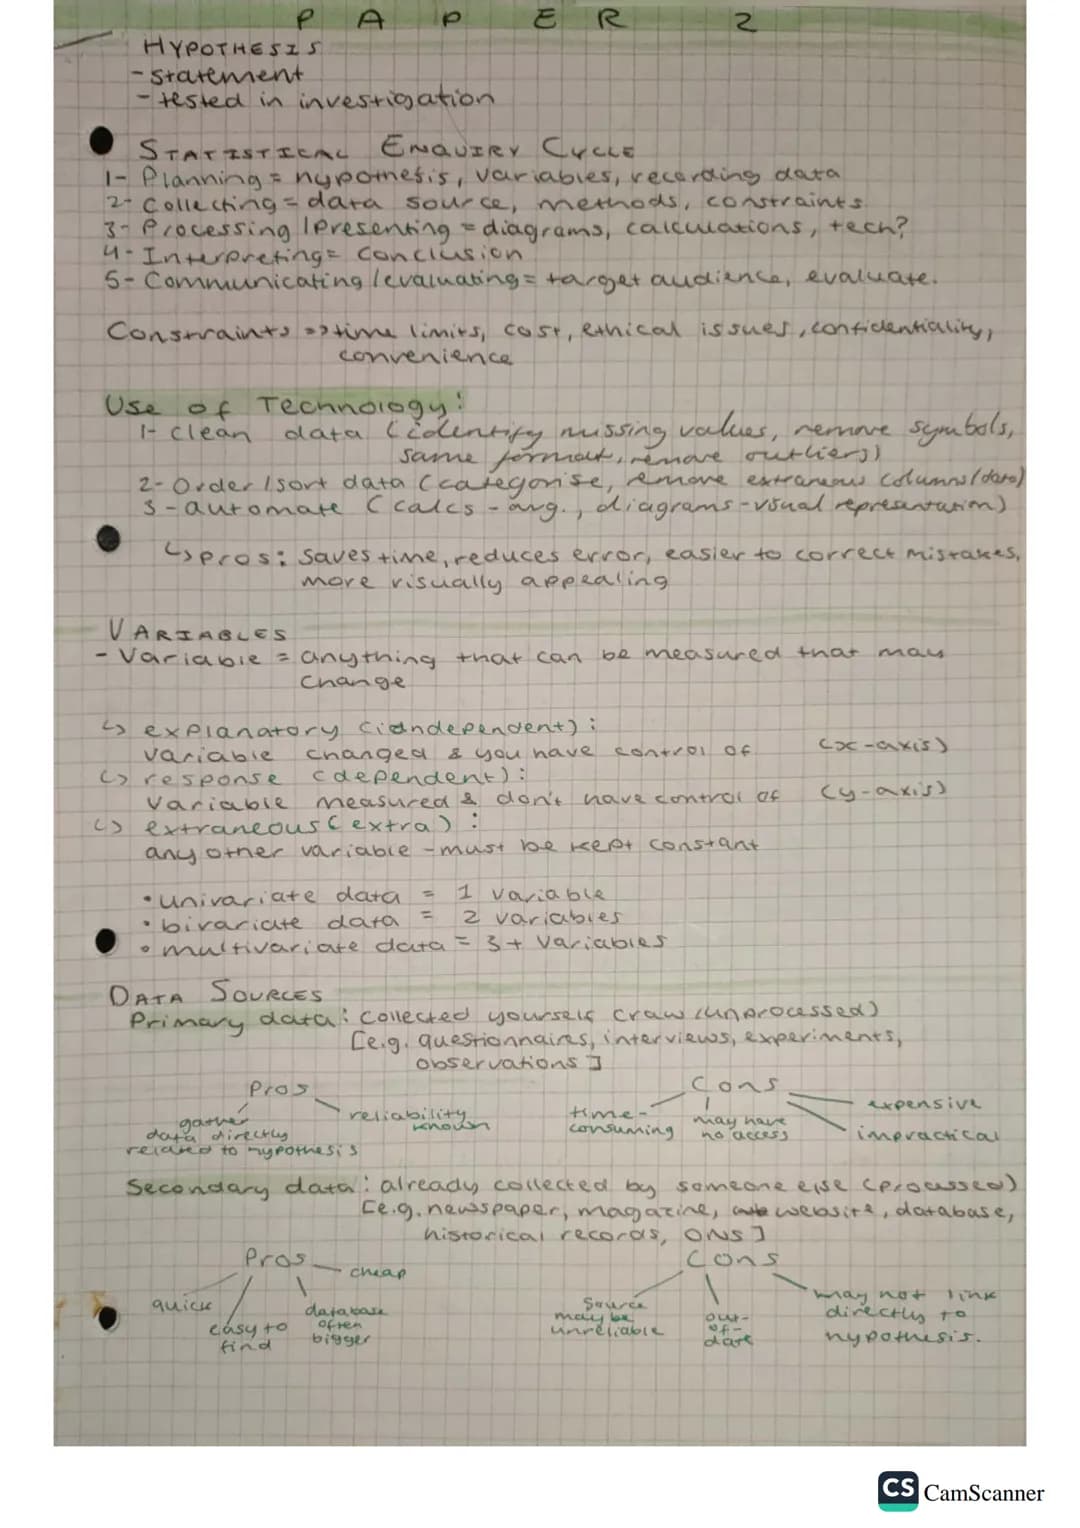 PAPER 2
HYPOTHESIS
- statement
- tested in investigation
STATISTICAL ENQUIRY CYCLE
1- Planning = hypothesis, variables, recording data
2- Collecting = data source, methods, constraints
3- Processing / Presenting = diagrams, calculations, tech?
4- Interpreting = conclusion
5- Communicating / evaluating = target audience, evaluate.
Constraints => time limits, cost, ethical issues, confidentiality,
convenience
Use of Technology:
1- clean data (identify missing values, remove symbols,
same format, remove outliers)
2- Order / sort data (categorise, remove extraneous columns/data)
3- automate (calcs - avg., diagrams - visual representation)
↳ pros: saves time, reduces error, easier to correct mistakes,
more visually appealing
VARIABLES
- Variable = anything that can be measured that may
change
↳ explanatory (iandependent):
variable changed & you have control of (x-axis)
↳ response (dependent):
variable measured & don't have control of (y-axis)
↳ extraneous (extra):
any other variable - must be kept constant
• univariate data = 1 variable
• bivariate data = 2 variables
• multivariate data = 3+ variables
DATA SOURCES
Primary data: collected yourself (raw/unprocessed)
[e.g. questionnaires, interviews, experiments,
observations]
Pros
gather
data directly
related to hypothesis
reliability
known
Cons
time-
consuming
may have
no access
expensive
impractical
Secondary data: already collected by someone else (processed)
[e.g. newspaper, magazine, website, database,
historical records, ONS]
Pros
cheap
quick
easy to
find
database
often
bigger
Cons
Source
may be
unreliable
out-
of-
date
may not link
directly to
hypothesis.
CS CamScanner